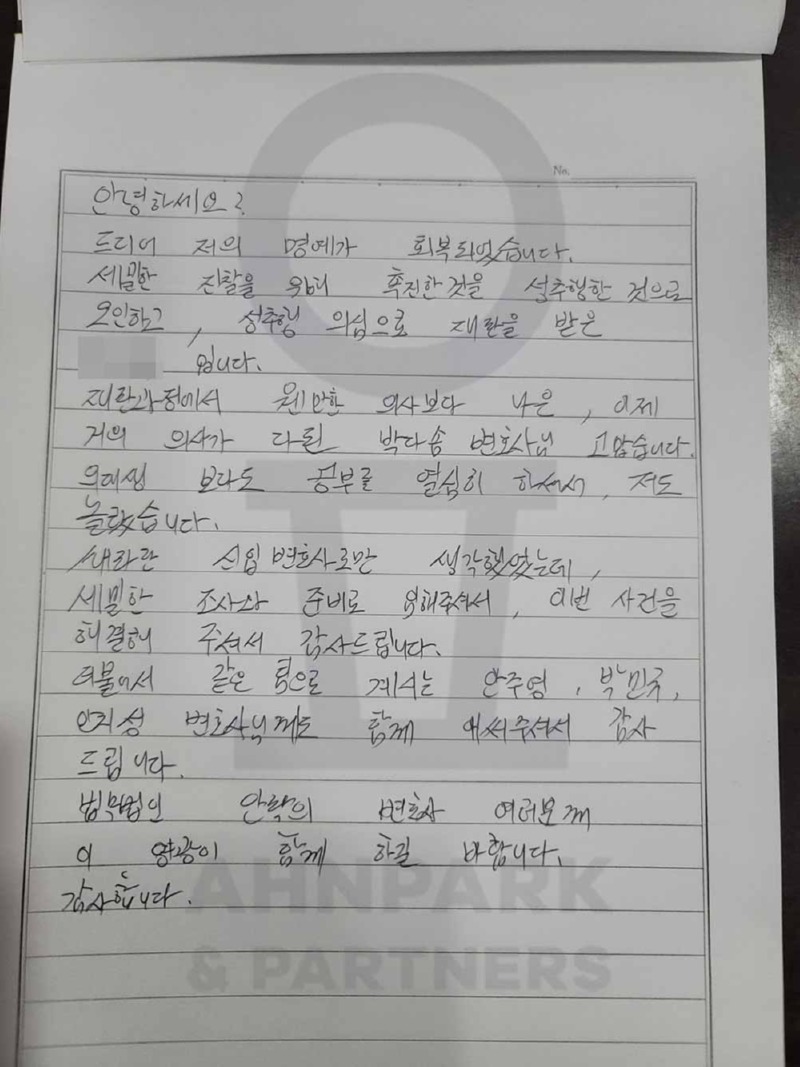 No.
안녕하세요?
드디어 저의 명예가 회복되었습니다.
세밀한 진찰을 위해 촉진한것을 성추행한 것으로
오인하고, 성추행 의심으로 재판을 받은
입니다.
재판과정에서 웬만한 의사보다 나은, 이제
거의 의사가 다된 박다솜 변호사님 고맙습니다.
의대생 보다도 공부를 열심히 하셔서, 저도
놀랐습니다.
새파란 신입변호사로만 생각했었는데,
세밀한 조사와 준비로 임해주셔서, 이번 사건을
해결해 주셔서 감사드립니다.
더불어서 같은 팀으로 계시는 안주영, 박민규,
인지성 변호사님께도 함께 애써주셔서 감사
드립니다.
법무법인 안팍의 변호사 여러분께
이 영광이 함께 하길 바랍니다.
감사합니다.
AHNPARK
& PARTNERS